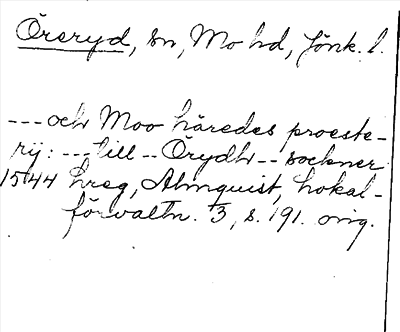 Öreryd, sn, Mo hd, Jönk. l.
--- och Moo häredes proeste-
rij: --- till -- Örydh -- sockner
1544 hreg, Almquist, Lokal-
förvaltn. 3, s. 191. orig.